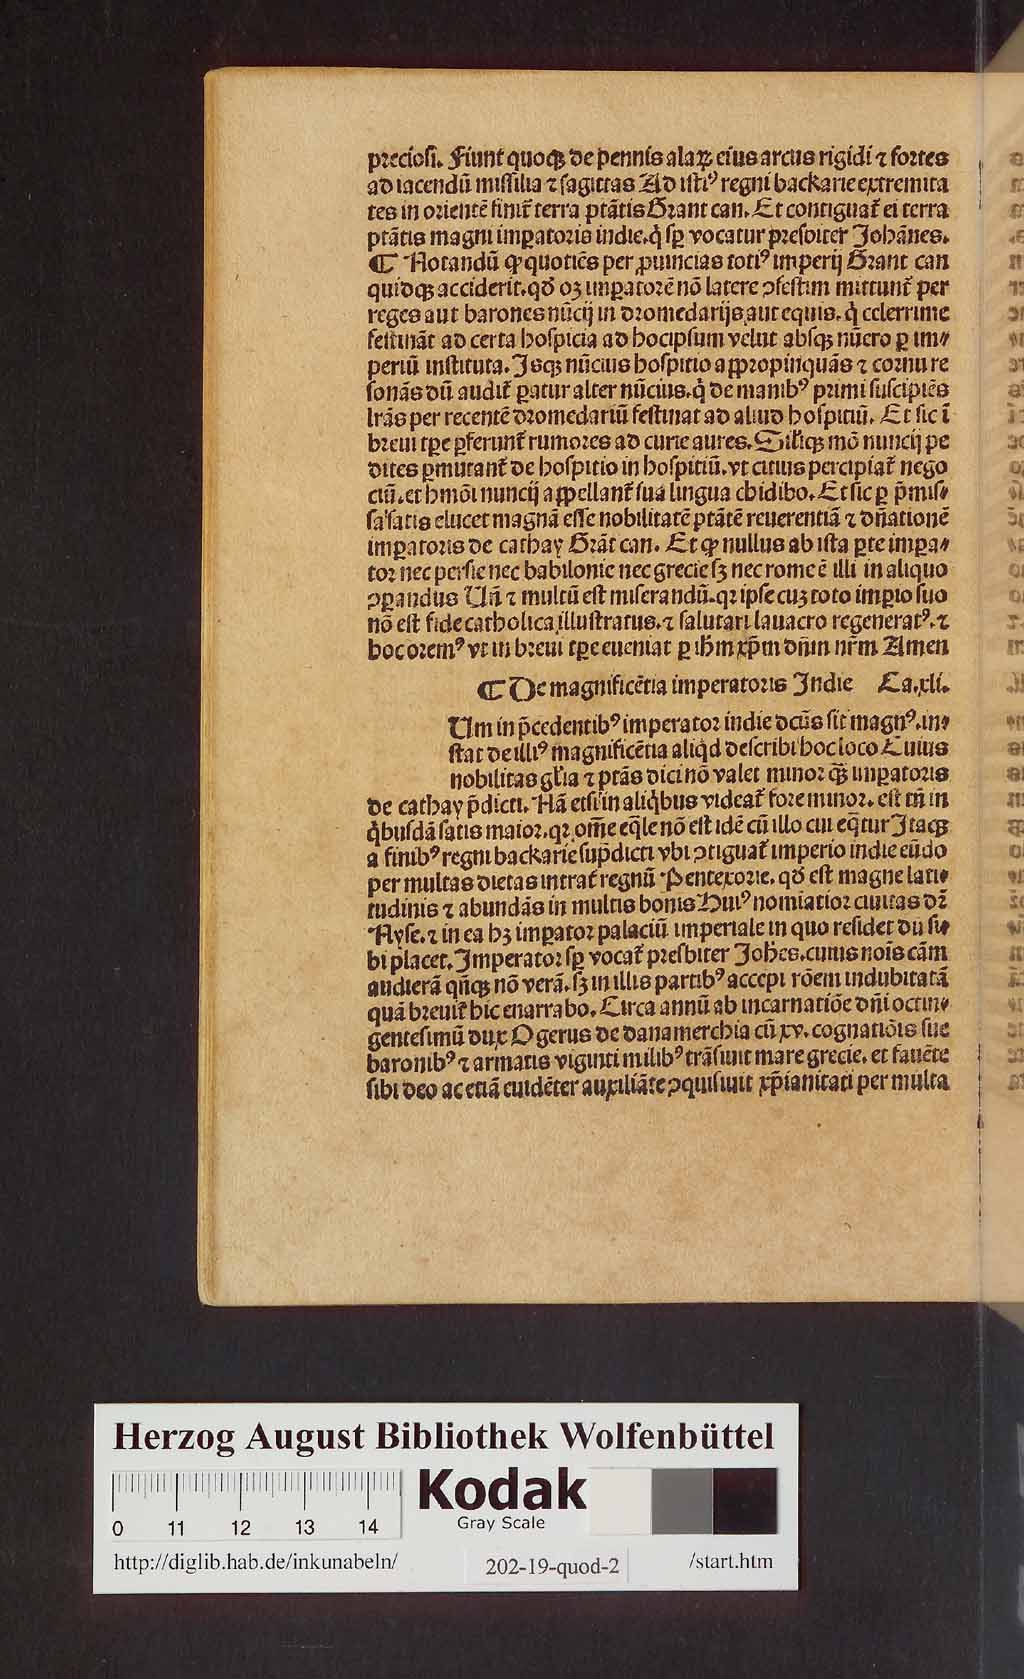 preciosi. Fiunt quoqꝫ de pennis alaꝝ eius arcus rigidi ⁊ fortes
ad iacendū missilia ⁊ sagittas Ad isti⁹ regni backarie extremita
tes in orientē finit᷑ terra ptātis Grant can. Et contiguat᷑ ei terra
ptātis magni imꝑatoris indie. q̇ sꝑ vocatur presbiter Johānes.
¶ Notandū ꝙ quotiēs per ꝓuincias toti⁹ imperij Grant can
quidqꝫ acciderit. qd̄ oꝫ imꝑatorē nō latere ↄfestim mittunt᷑ per
reges aut barones nūcij in dromedarijs aut equis. q̇ celerrime
festināt ad certa hospicia ad hocipsum velut absqꝫ nūero ꝑ im⸗
periū instituta. Isqꝫ nūcius hospitio appropinquās ⁊ cornu re
sonās dū audit᷑ ꝑatur alter nūcius. q̇ de manib⁹ primi suscipiēs
lrās per recentē dromedariū festinat ad aliud hospitiū. Et sic ī
breui tꝑe ꝑferunt᷑ rumores ad curie aures. Silīqꝫ mō nuncij pe
dites ꝑmutant᷑ de hospitio in hospitiū. vt citius percipiat᷑ nego
ciū. et hmōi nuncij appellant᷑ sua lingua chidibo. Et sic ꝑ p̄mis⸗
sa satis elucet magnā esse nobilitatē ptātē reuerentiā ⁊ dn̄ationē
imꝑatoris de cathay Grāt can. Et ꝙ nullus ab ista ꝑte imꝑa⸗
tor nec persie nec babilonie nec grecie sꝫ nec rome ē illi in aliquo
ↄꝑandus Un̄ ⁊ multū est miserandū. qꝛ ipse cuꝫ toto imꝑio suo
nō est fide catholica illustratus. ⁊ salutari lauacro regenerat⁹. ⁊
hoc orem⁹ vt in breui tꝑe eueniat ꝑ ihm̄ xp̄m dn̄m nr̄m Amen
¶ De magnificētia imperatoris Indie Ca. xli.
Um in p̄cedentib⁹ imperator indie dcūs sit magn⁹. in⸗
stat de illi⁹ magnificētia aliq̇d describi hoc loco Cuius
nobilitas gl̄ia ⁊ ptās dici nō valet minor ꝙ̄ imꝑatoris
de cathay p̄dicti. Nā etsi in aliq̇bus videat᷑ fore minor. est tn̄ in
q̇busdā satis maior. qꝛ om̄e eq̄le nō est idē cū illo cui eq̄tur Itaqꝫ
a finib⁹ regni backarie sup̄dicti vbi ↄtiguat᷑ imperio indie eūdo
per multas dietas intrat᷑ regnū Pentexorie. qd̄ est magne lati⸗
tudinis ⁊ abundās in multis bonis Hui⁹ nomiatior ciuitas dꝛ̄
Nyse. ⁊ in ea hꝫ imꝑator palaciū imperiale in quo residet dū si⸗
bi placet. Imperator sꝑ vocat᷑ presbiter Johēs. cuius nois cām
audierā qn̄qꝫ nō verā. sꝫ in illis partib⁹ accepi rōem indubitatā
quā breuit᷑ hic enarrabo. Circa annū ab incarnatiōe dn̄i octin⸗
gentesimū dux Ogerus de danamerchia cū xv. cognatiōis sue
baronib⁹ ⁊ armatis viginti milib⁹ trāsiuit mare grecie. et fauēte
sibi deo ac etiā euidēter auxiliāte ↄquisiuit xp̄ianitati per multa
Herzog August Bibliothek Wolfenbüttel
Kodak
Gray Scale
0 11 12 13 14
http://diglib.hab.de/inkunabeln/ 202-19-quod-2 /start.htm